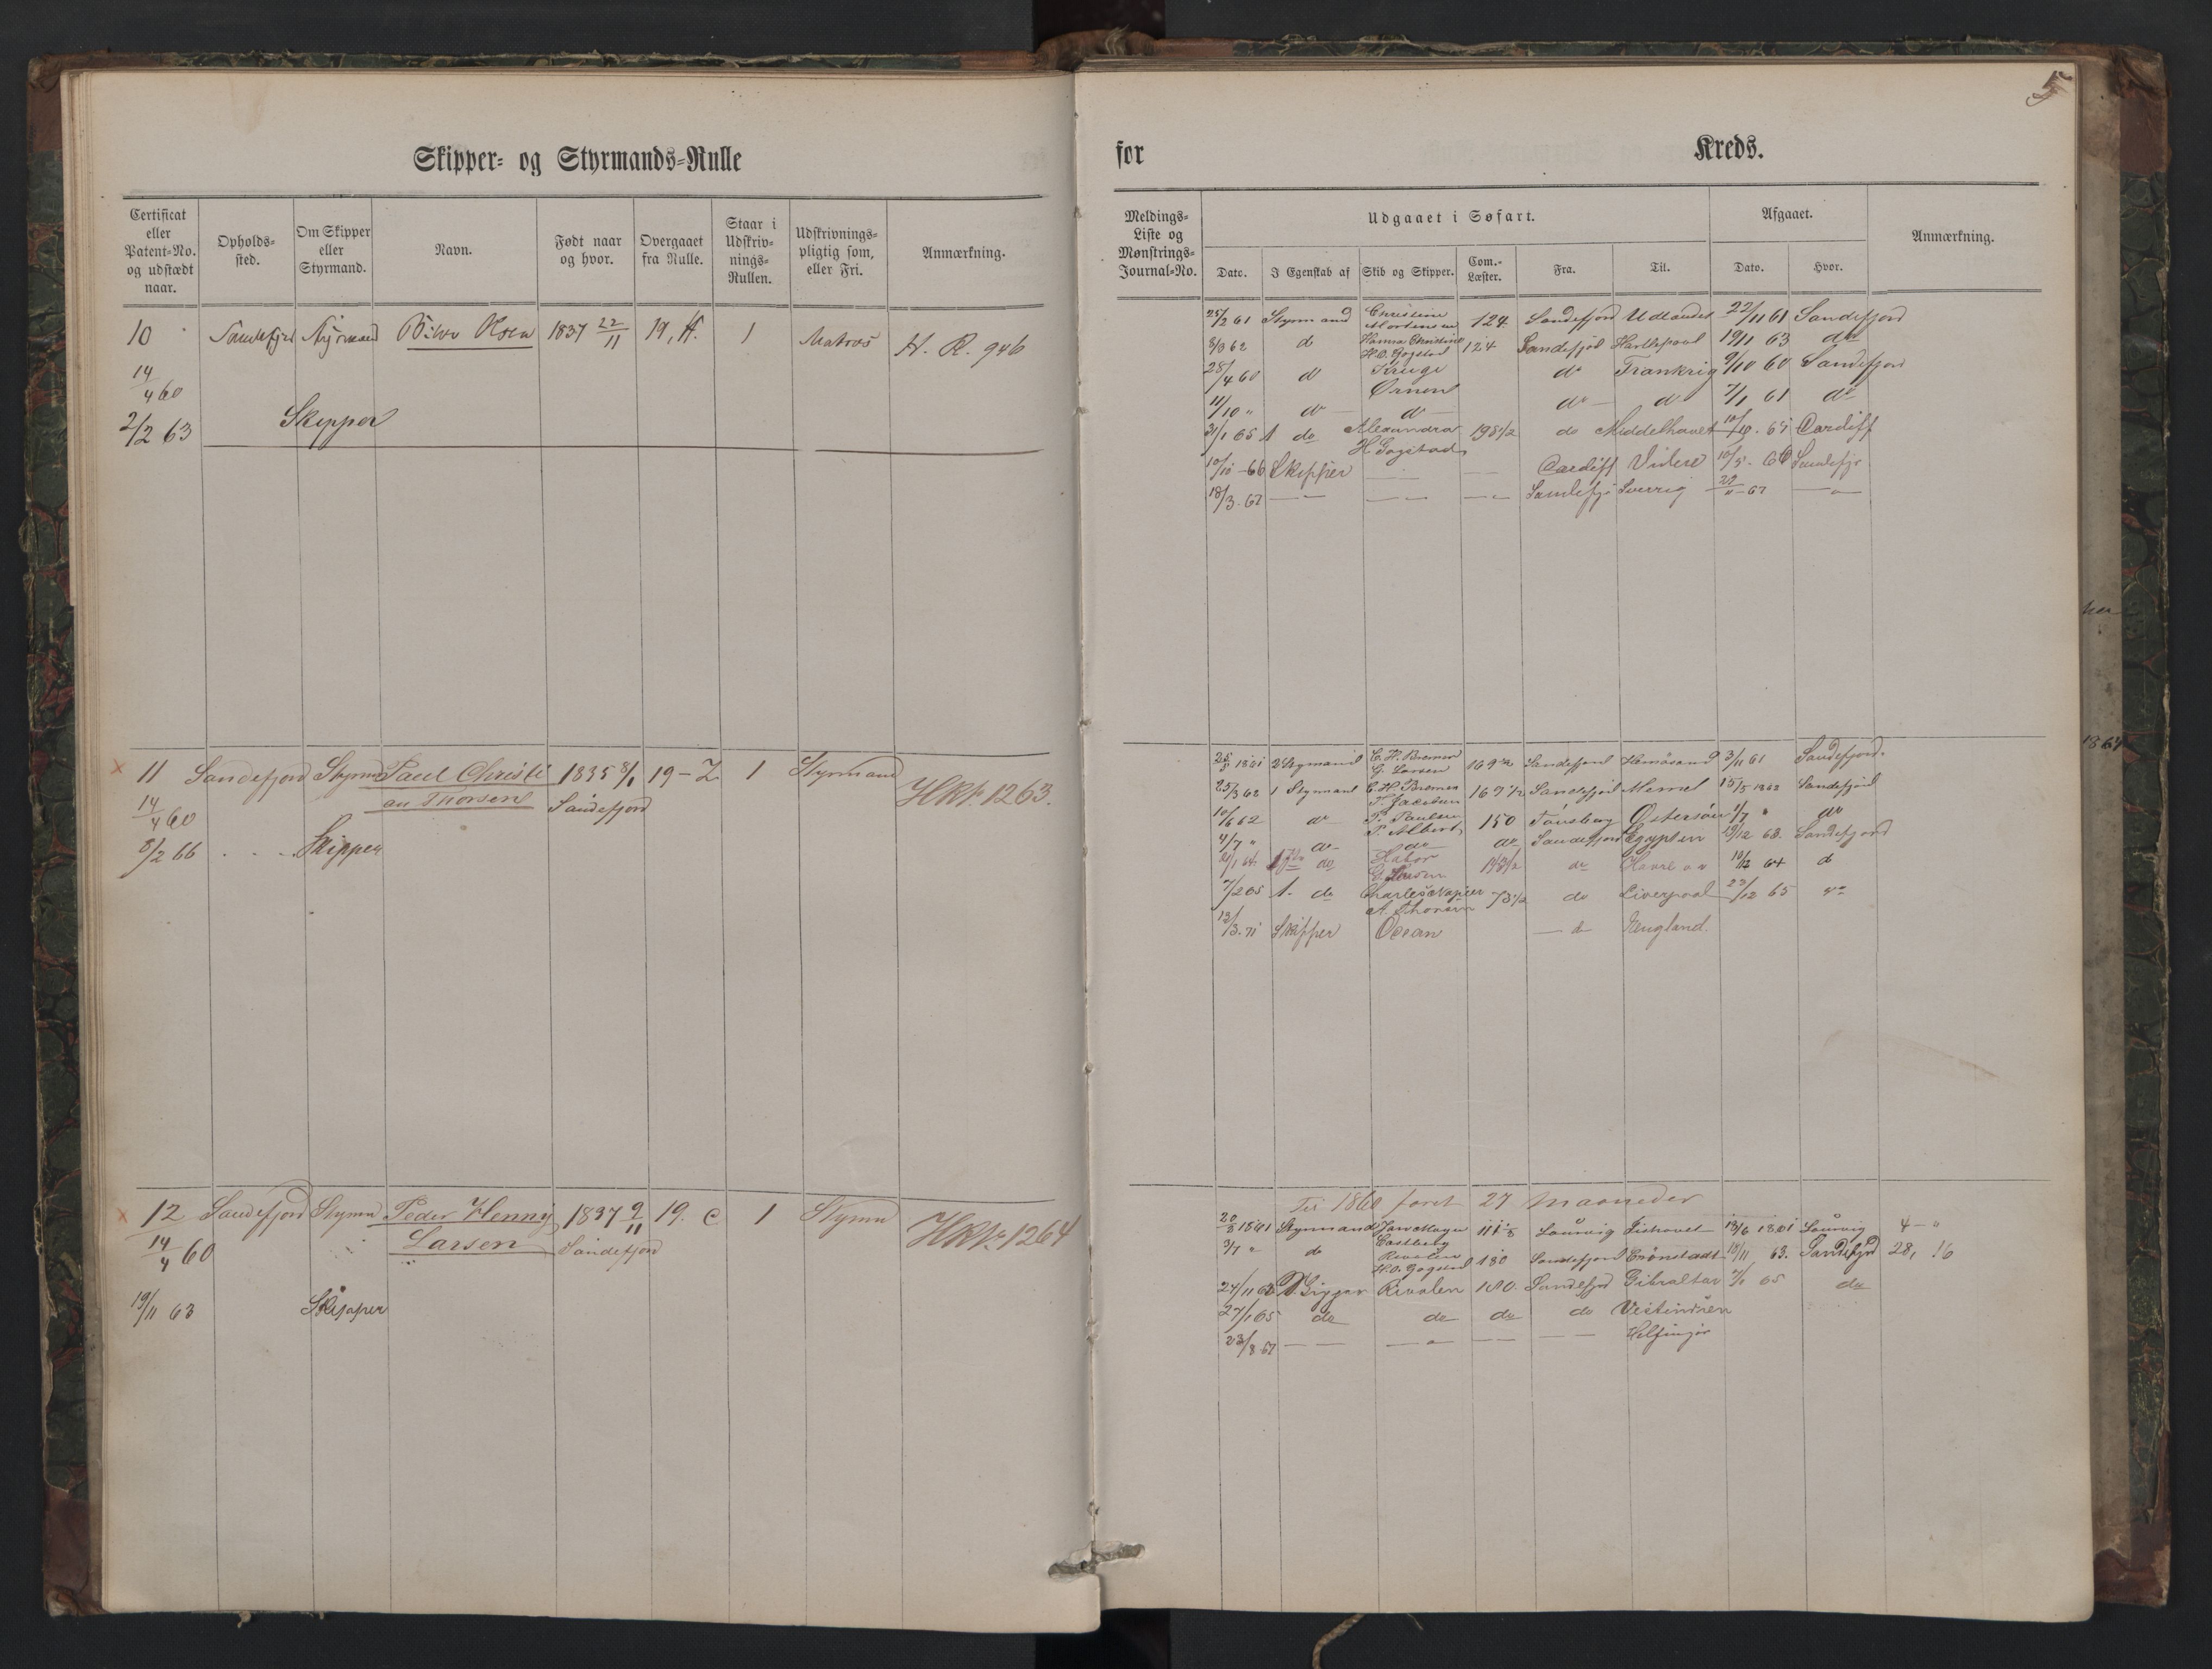 5
Skipper- og Styrmands-Rulle
for Kreds.
Certificat eller Patent-No. og udstædt naar.
Opholds-sted.
Om Skipper eller Styrmand.
Navn.
Født naar og hvor.
Overgaaet fra Rulle.
Staar i Udskriv-nings-Rullen.
Udskrivnings-pligtig som, eller Fri.
Anmærkning.
Meldings-Liste og Mønstrings-Journal-No.
Udgaaet i Søfart.
Dato. I Egenskab af Skib og Skipper. Com.-Læster. Fra. Til.
Afgaaet.
Dato. Hvor.
Anmærkning.
10 Sandefjord Styrmand Olsen 1837 22/11 19, H. 1 Matros H. R. 946
14/4 60
2/2 63 Skipper
25/2 61 Styrmand Christine Mortensen 124 Sandefjord Udlandet 22/11 61 Sandefjord
62 do Hannas Christine H.O. Gogstad 124 Sandefjord Hartlepool 19/11 63 do
28/4 60 do do Frankrig 9/10 60 Sandefjord
11/10 " do Ørnen do do 7/1 61 do
31/1 65 1 do Alexandra H Gogstad 198 1/2 do Middelhavet Cardiff
10/10 - 66 Skipper Cardiff Videre 10/5 66 Sandefj
18/3 - 67 Sandefj Sverrig 67
11 Sandefjord Styrm Paul Christi 1835 8/1 19 - Z 1 Styrmand HRN. 1263.
14/4 60 an Thorsen Sandefjord
8/2 66 Skipper
1861 2 Stymand C. H. Bremer G. Larsen Sandefjord 3/11 61 Sandefjord
25/3 62 1 Styrmand C. H. Bremer T. Jacobsen 167 1/2 Sandefjord Memel 15/5 1862 Sandefjord
10/6 62 do P. Paulsen P. Albert 150 Tønsberg Østersøen 1/7 " do
4/7 " do do do Sandefjord Egypten 19/12 63. Sandefjord
64 do Habor G. Larsen do Havre 64 d
7/2 65 1. do Charles Napier A. Thorsen 73 1/2 do Liverpool 23/12 65
13/3. 71 Skipper Ocean d England.
12 Sandefjord Styrm Peder Henny 1837 9/11 19. C 1 Styrm HRN. 1264
14/4 60 Larsen Sandefjord
19/11 63 Skipper
Til 1860 faret 27 maaneder
1861 Styrmand Jarw Mayer Castberg Laurvig Listravet 18/6 1861 Laurvig 4 - "
3/7 " do Rivalen H.O. Gogstad 180 Sandefjord Crønstadt 19/11 63. Sandefjord 28, 16
27/11 63 Rivalen 180. Sandefjord Gibraltar 7/1 65 do
27/1 65 do do do do Vestindien
23/8 67 Helsingør
1864